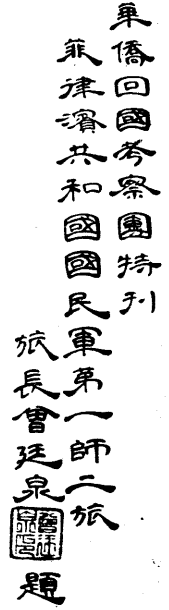 華僑回國考察團特刊
菲律濱共和國國民軍第一師二旅
旅長曾廷泉題